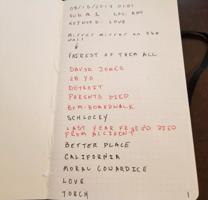 09/10/2017 0101
SUB # 1
KEYWORD: LOVE
Mirror mirror on the wall
FAIREST OF THEM ALL
DAVID JONES
28 YO
DETROIT
PARENTS DIED
BFM-BOARDWALK
SCHLOCKY
LAST YEAR DIED
FROM ACCIDENT
BETTER PLACE
CALIFORNIA
MORAL COWARDICE
LOVE
TORCH
1